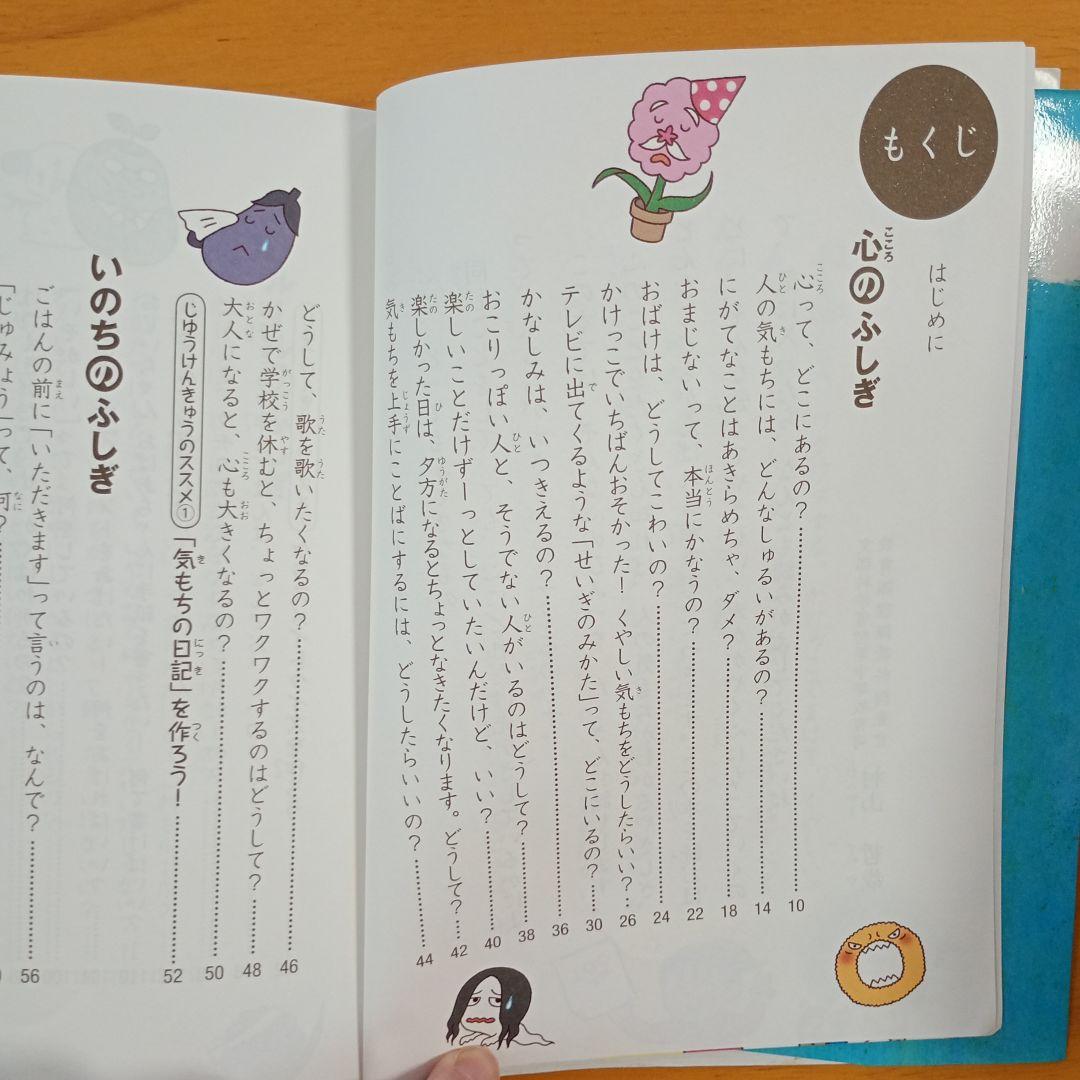 もくじ
はじめに
心のふしぎ
心って、どこにあるの？……10
人の気もちには、どんなしゅるいがあるの？……14
にがてなことはあきらめちゃ、ダメ？……18
おまじないって、本当にかなうの？……22
おばけは、どうしてこわいの？……24
かけっこでいちばんおそかった！　くやしい気もちをどうしたらいい？……26
テレビに出てくるような「せいぎのみかた」って、どこにいるの？……30
かなしみは、いつきえるの？……36
おこりっぽい人と、そうでない人がいるのはどうして？……38
楽しいことだけずーっとしていたいんだけど、いい？……40
楽しかった日は、夕方になるとちょっとなきたくなります。どうして？……42
気もちを上手にことばにするには、どうしたらいいの？……44
どうして、歌を歌いたくなるの？……46
かぜで学校を休むと、ちょっとワクワクするのはどうして？……48
大人になると、心も大きくなるの？……50
じゆうけんきゅうのススメ①「気もちの日記」を作ろう！……52
いのちのふしぎ
ごはんの前に「いただきます」って言うのは、なんで？……56
「じゅみょう」って、何？……